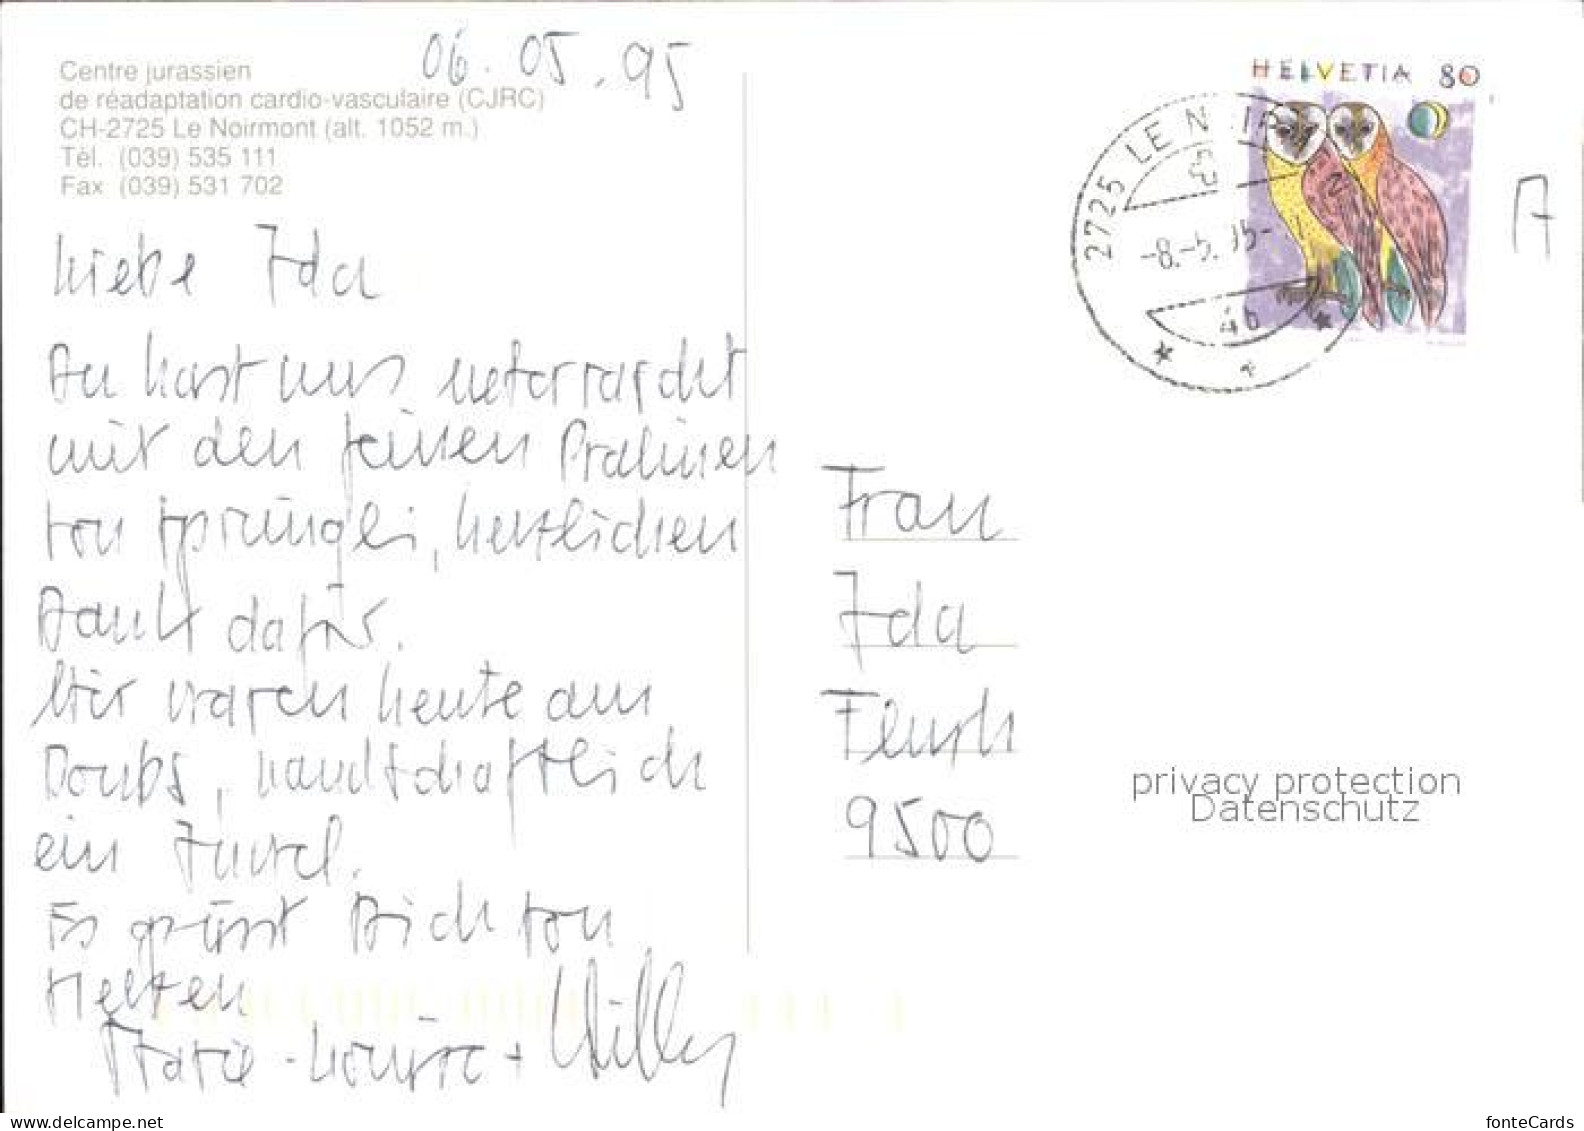 06.05.95
Centre jurassien
de réadaptation cardio-vasculaire (CJRC)
CH-2725 Le Noirmont (alt. 1052 m.)
Tél. (039) 535 111
Fax (039) 531 702
Liebe Ida
Du hast uns überrascht
mit den feinen Pralinen
von Sprüngli, herzlichen
Dank dafür.
Wir waren heute am
Doubs, landschaftlich
ein Juwel.
Es grüsst Dich von
Herzen
Marie-Louise + Willy
HELVETIA 80
2725 LE N IR
-8.-5. 95-
A
Frau
Ida
9500
privacy protection
Datenschutz
fonteCards
www.delcampe.net